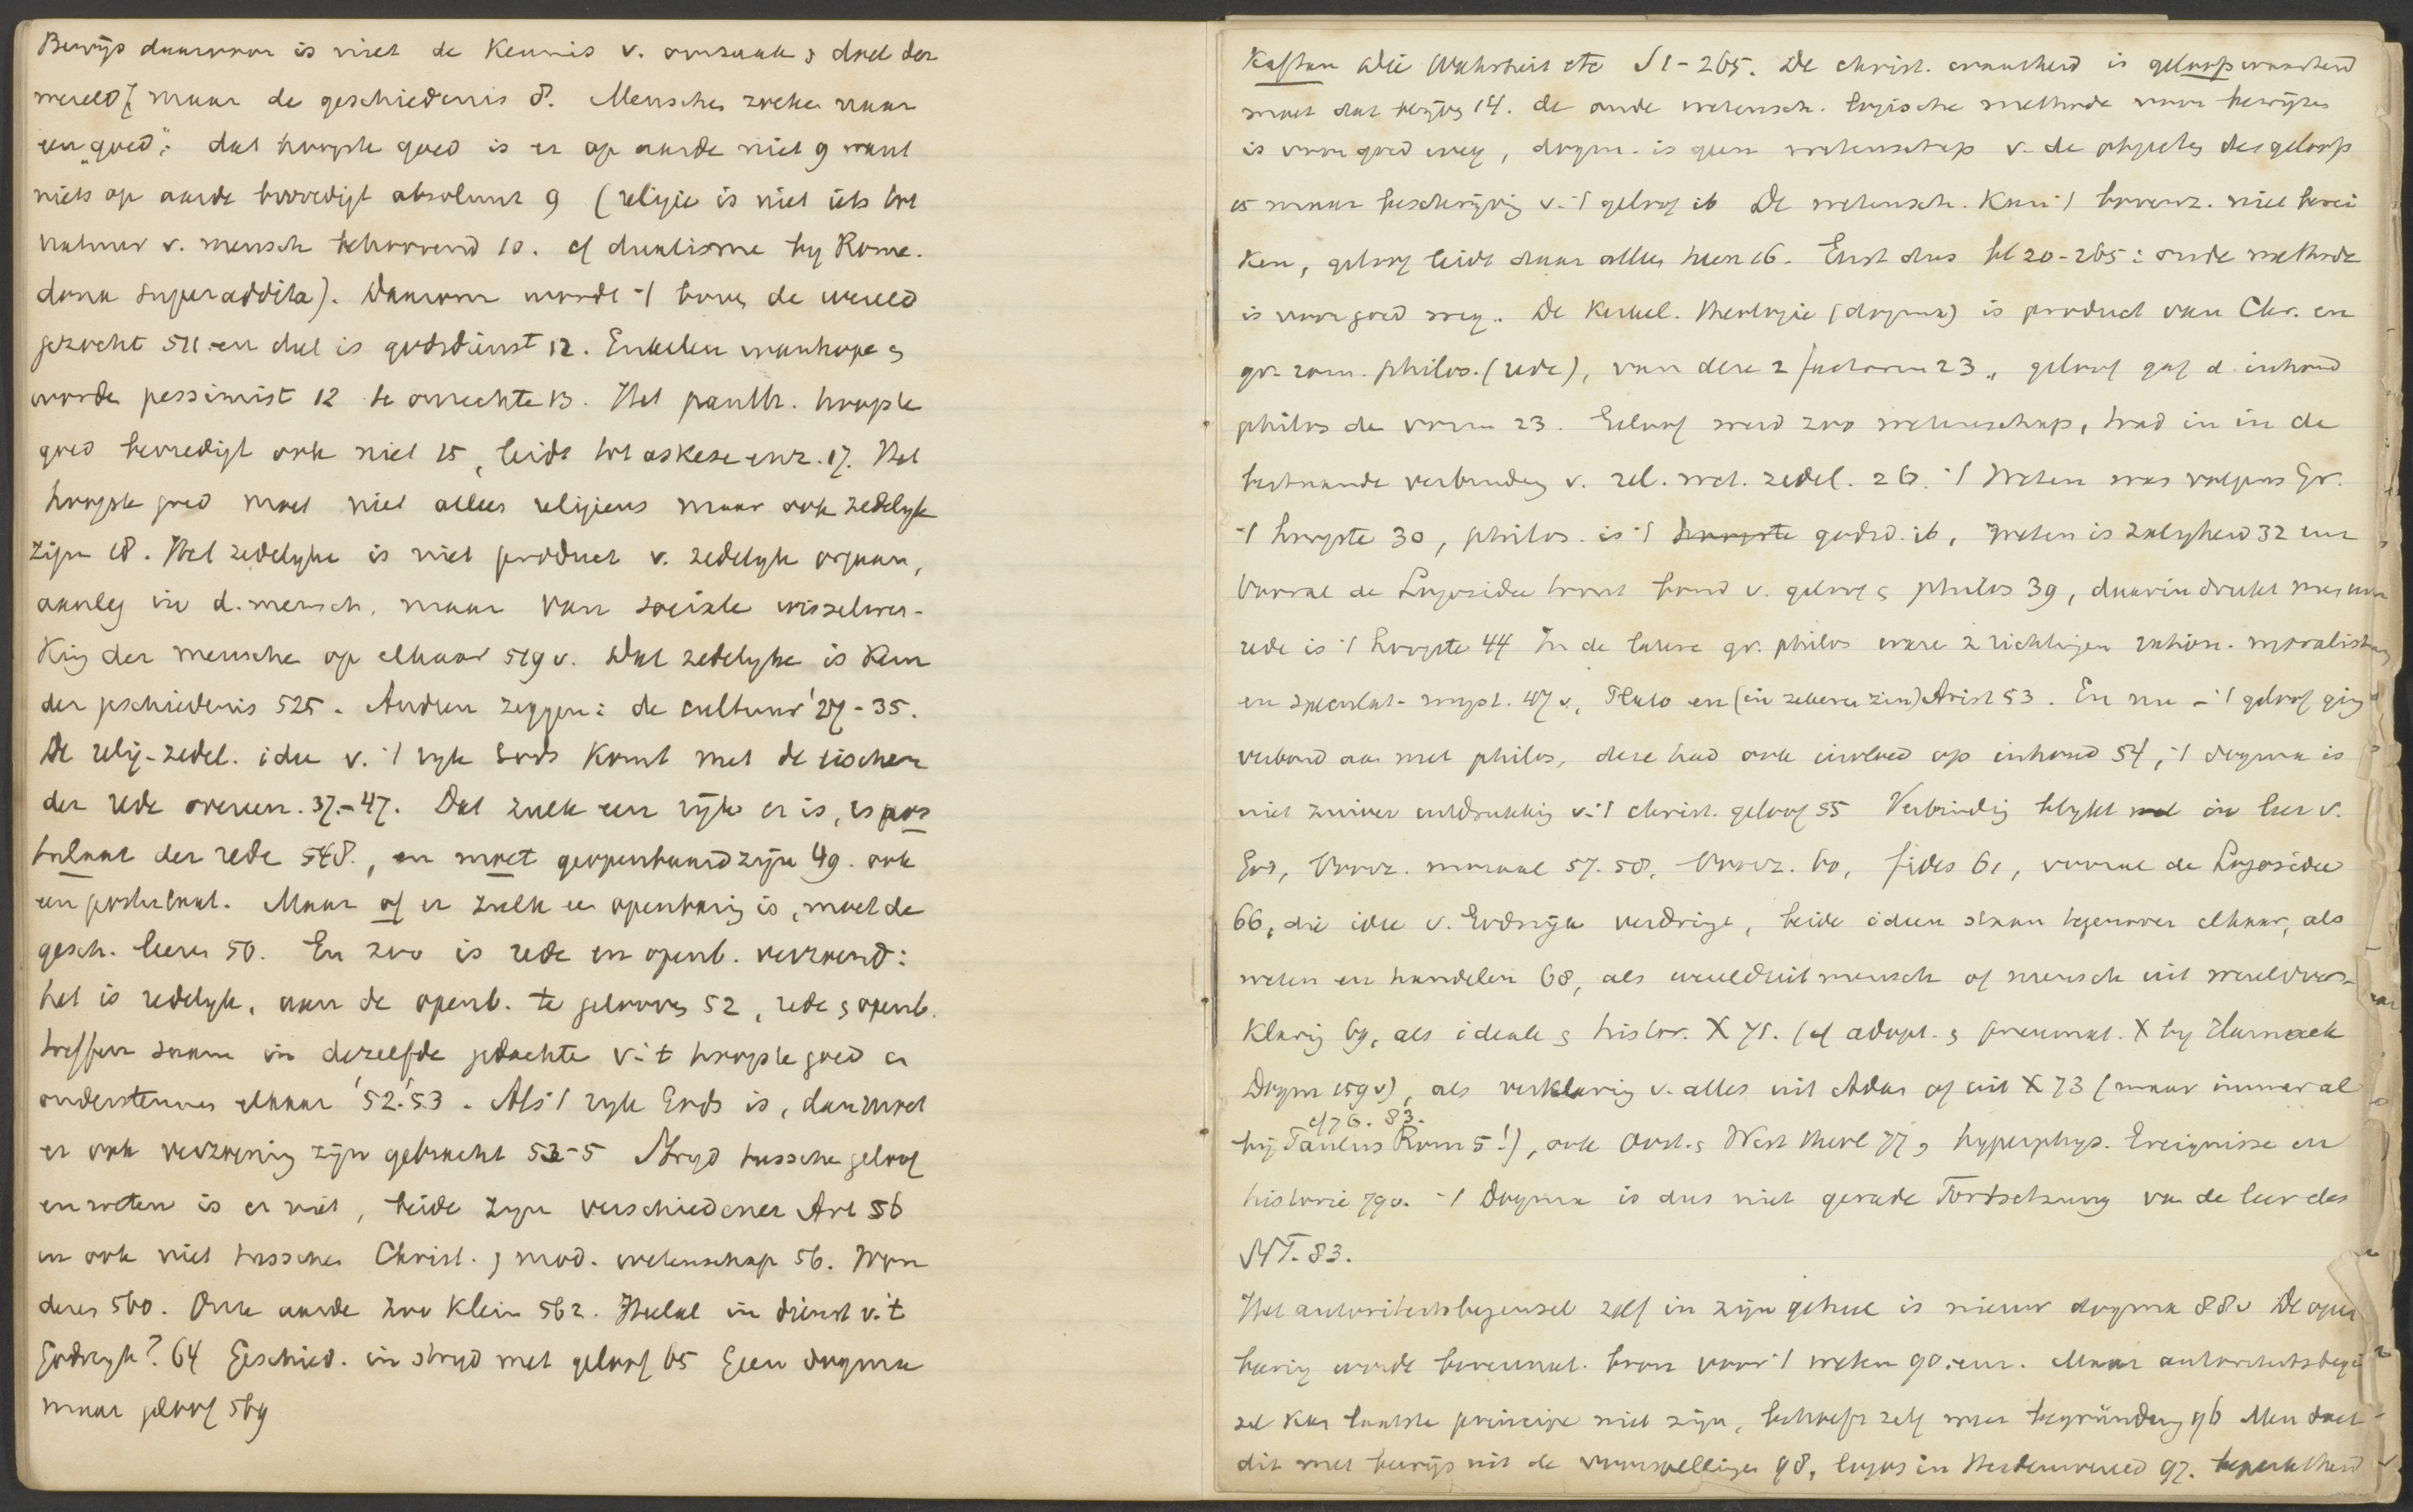 Bewijs daarvoor is niet de Kennis v. oorzaak & doel der
wereld, maar de geschiedenis 8. Menschen zoeken naar
een „goed”; dat hoogste goed is er op aarde niet 9 want
niets op aarde bevredigt absoluut 9 (religie is niet iets tot
natuur v. mensch behoorend 10. cf dualisme by Rome.
dona superaddita). Daarom wordt 't boven de wereld
gezocht 511 en dat is godsdienst 12. Enkelen wanhopen &
worden pessimist 12 te onrechte 13. Het panth. hoogste
goed bevredigt ook niet 15, leidt tot askese enz. 17. Het
hoogste goed moet niet alleen religieus maar ook zedelyk
zijn 18. Het zedelyke is niet product v. zedelyk orgaan,
aanleg in d. mensch, maar van sociale wisselwer-
king der menschen op elkaar 519 v. Dat zedelyke is Kern
der geschiedenis 525. Andren zeggen: de cultuur '27-35.
De relig-zedel. idee v. 't ryk Gods komt met de eischen
der rede overeen. 37-47. Dat zulk een rijk er is, is pos
tulaat der rede 548., en moet geopenbaard zijn 49. ook
een postulaat. Maar of er zulk een openbaring is, moet de
gesch. leeren 50. En zoo is rede en openb. verzoend:
het is redelyk, aan de openb. te gelooven 52, rede & openb.
treffen saam in dezelfde gedachte v. 't hoogste goed en
ondersteunen elkaar '52.'53. Als 't ryk Gods is, dan moet
er ook verzoening zijn gebracht 53-5 Stryd tusschen geloof
en weten is er niet, beide zyn verschiedener Art 56
en ook niet tusschen Christ. & mod. wetenschap 56. Won
deren 560. Onze aarde zoo klein 562. Heelal in dienst v. 't
Godsryk? 64 Geschied. in stryd met geloof 65 Geen dogma
maar geloof 569
Kaftan Die Wahrheit etc S 1-265. De christ. waarheid is geloofswaarheid
moet dat blijven 14. de oude wetensch. logische methode van bewijzen
is voor goed weg, dogm. is geen wetenschap v. de objecten des geloofs
15 maar beschrijving v. 't geloof ib De wetensch. Kan 't bovenz. niet berei
ken, geloof leidt daar alleen heen 16. Eerst dus bl 20-265: oude methode
is voor goed weg. De Kerkel. theologie (dogma) is product van Chr. en
gr.-rom. philos. (rede), van deze 2 factoren 23, geloof gaf d. inhoud
philos de vorm 23. Geloof werd zoo wetenschap, trad in in de
bestaande verbinding v. rel. wet. zedel. 26. 't Weten was volgens Gr.
't hoogste 30, philos. is 't hoogste godsd. ib, Weten is zaligheid 32 enz
Vooral de Logosidee vormt band v. geloof & philos 39, daarin drukt men uit
rede is 't hoogste 44 In de latere gr. philos waren 2 richtingen ration. moralist
en speculat-myst. 47 v, Plato en (in zekeren zin) Arist 53. En nu - 't geloof ging
verbond aan met philos, deze had ook invloed op inhoud 54, 't dogma is
niet zuiver uitdrukking v. 't christ. geloof 55 Verbinding blykt in leer v.
God, Voorz. moraal 57. 58, Voorz. 60, fides 61, vooral de Logosidee
66, die idee v. Godsrijk verdringt, beide ideen staan tegenover elkaar, als
weten en handelen 68, als wereld uit mensch of mensch uit wereld ver-
klaring 69, als ideale & histor. X 71. (cf adopt. & pneumat. X by Harnack
Dogm 159 v), als verklaring v. alles uit Adam of uit X 73 (maar immers al
cf 76. 83.
bij Paulus Rom 5!), ook Oost. & West theol 77, hyperphys. Ereignisse en
historie 79v. 't Dogma is dus niet gerade Fortsetzung van de leer des
NT. 83.
Het autoriteitsbeginsel zelf in zijn geheel is nieuw dogma 88 v De open
baring wordt bovennat. bron voor 't weten 90. enz. Maar autoriteitsbegin
sel kan laatste principe niet zijn, behoeft zelf weer begründung 96 Men doet
dit met bewijs uit de voorspellingen 98, logos in Heidenwereld 97.